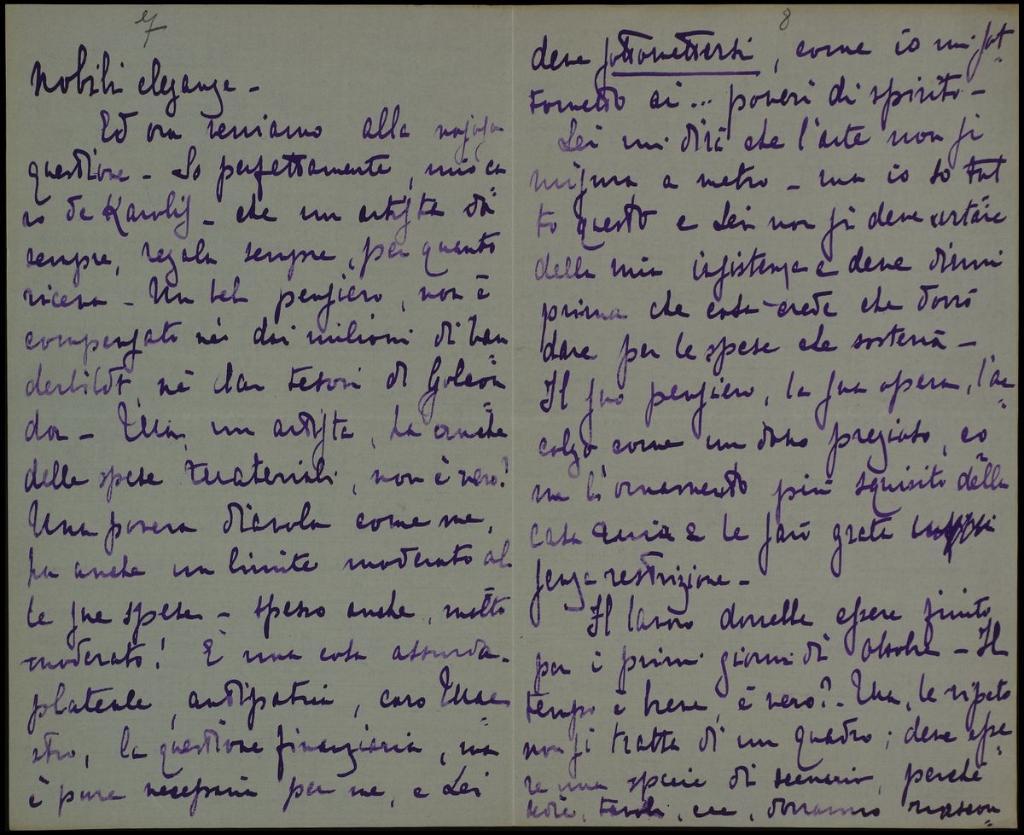 7
nobili eleganze -
Ed ora veniamo alla noiosa
questione - So perfettamente, mio ca
ro De Karolis - che un artista dà
sempre, regala sempre, per quanto
riceva - Un bel pensiero, non è
compensato nè dai milioni di Van
derbildt, nè dai tesori di Golcon
da - Ma, un artista, ha anche
delle spese materiali, non è vero?
Una povera diavola come me,
ha anche un limite moderato al
le sue spese - spesso anche, molto
moderato! È una cosa assurda -
plateale, antipatica, caro Mae
stro, la questione finanziaria, ma
è pure necessaria per me, e Lei
8
deve sottomettersi, come io mi sot
tometto ai... poveri di spirito -
Lei mi dirà che l'arte non si
misura a metro - ma io so tut
to questo e Lei non si deve urtare
della mia insistenza e deve dirmi
prima che cosa crede che dovrò
dare per le spese che sosterrà -
Il suo pensiero, la sua opera, l'ac
colgo come un dono pregiato, co
me l'ornamento più squisito della
casa mia e le sarò grata
senza restrizione -
Il lavoro dovrebbe essere finito
per i primi giorni di Ottobre - Il
tempo è breve, è vero? - Ma, le ripeto
non si tratta di un quadro; deve esse
re una specie di scenario, perchè
sedie, tavoli, ecc, dovranno nascon